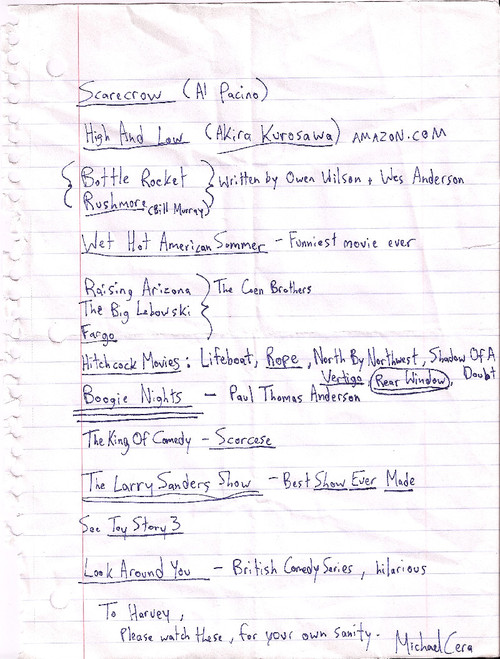 Scarecrow (Al Pacino)
High And Low (Akira Kurosawa) AMAZON.COM
Bottle Rocket
Rushmore (Bill Murray)
Written by Owen Wilson + Wes Anderson
Wet Hot American Summer - Funniest movie ever
Raising Arizona
The Big Lebowski
Fargo
The Coen Brothers
Hitchcock Movies: Lifeboat, Rope, North By Northwest, Shadow Of A Doubt,
Vertigo, Rear Window
Boogie Nights - Paul Thomas Anderson
The King Of Comedy - Scorcese
The Larry Sanders Show - Best Show Ever Made
See Toy Story 3
Look Around You - British Comedy Series, hilarious
To Harvey,
Please watch these, for your own sanity. Michael Cera